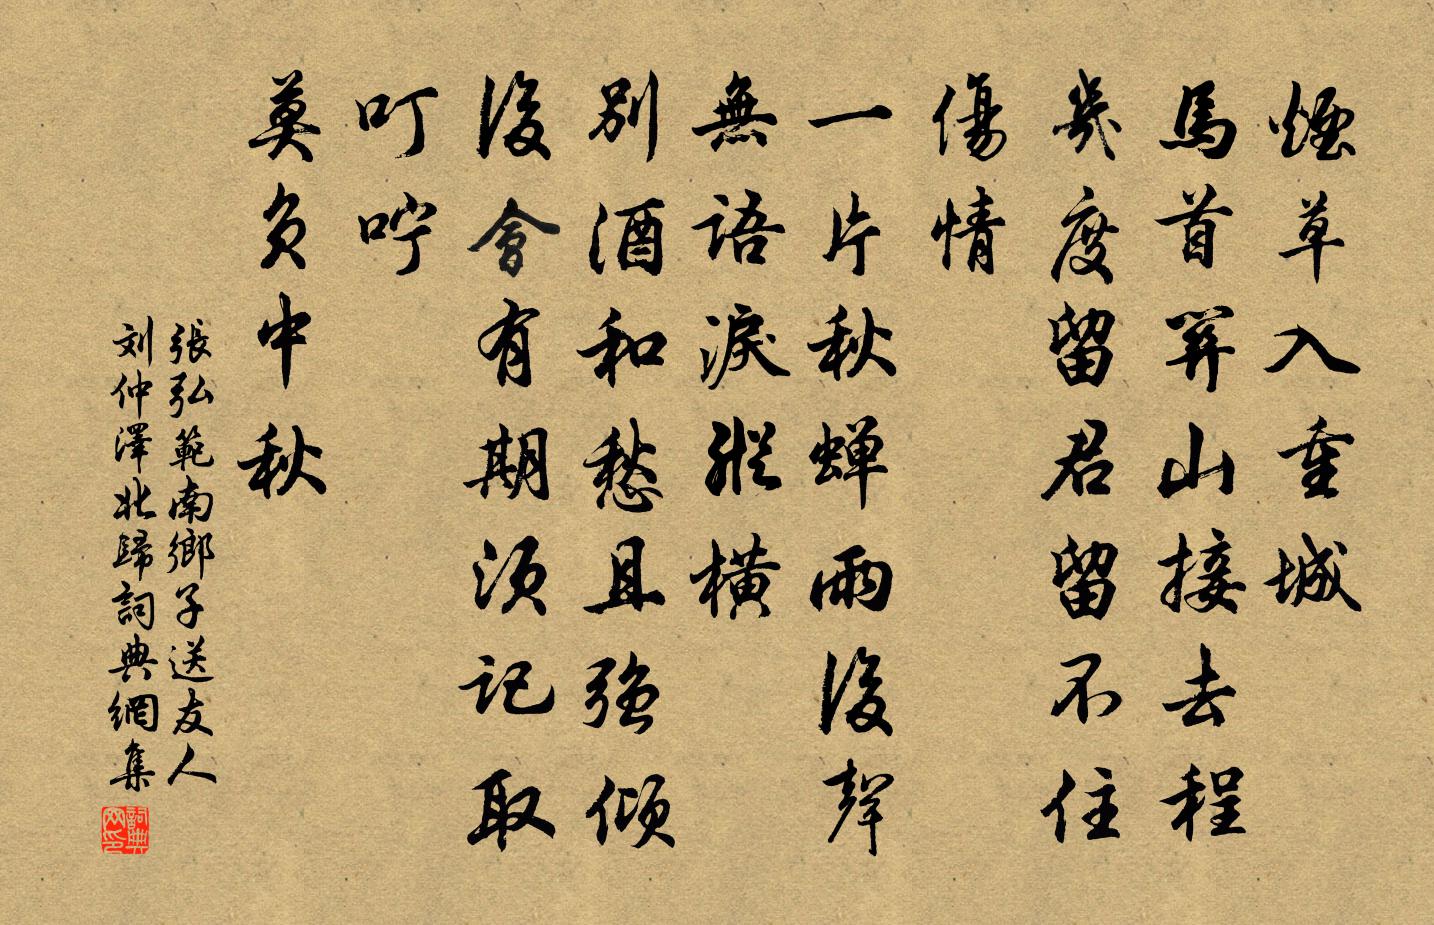 煙草入重城
馬首関山接去程
幾度留君留不住
傷情
一片秋蝉雨後聲
無語淚縱橫
別酒和愁且强傾
後會有期須记取
叮咛
莫负中秋
張弘範南鄉子送友人
刘仲澤北歸詞典網集
詞典网印